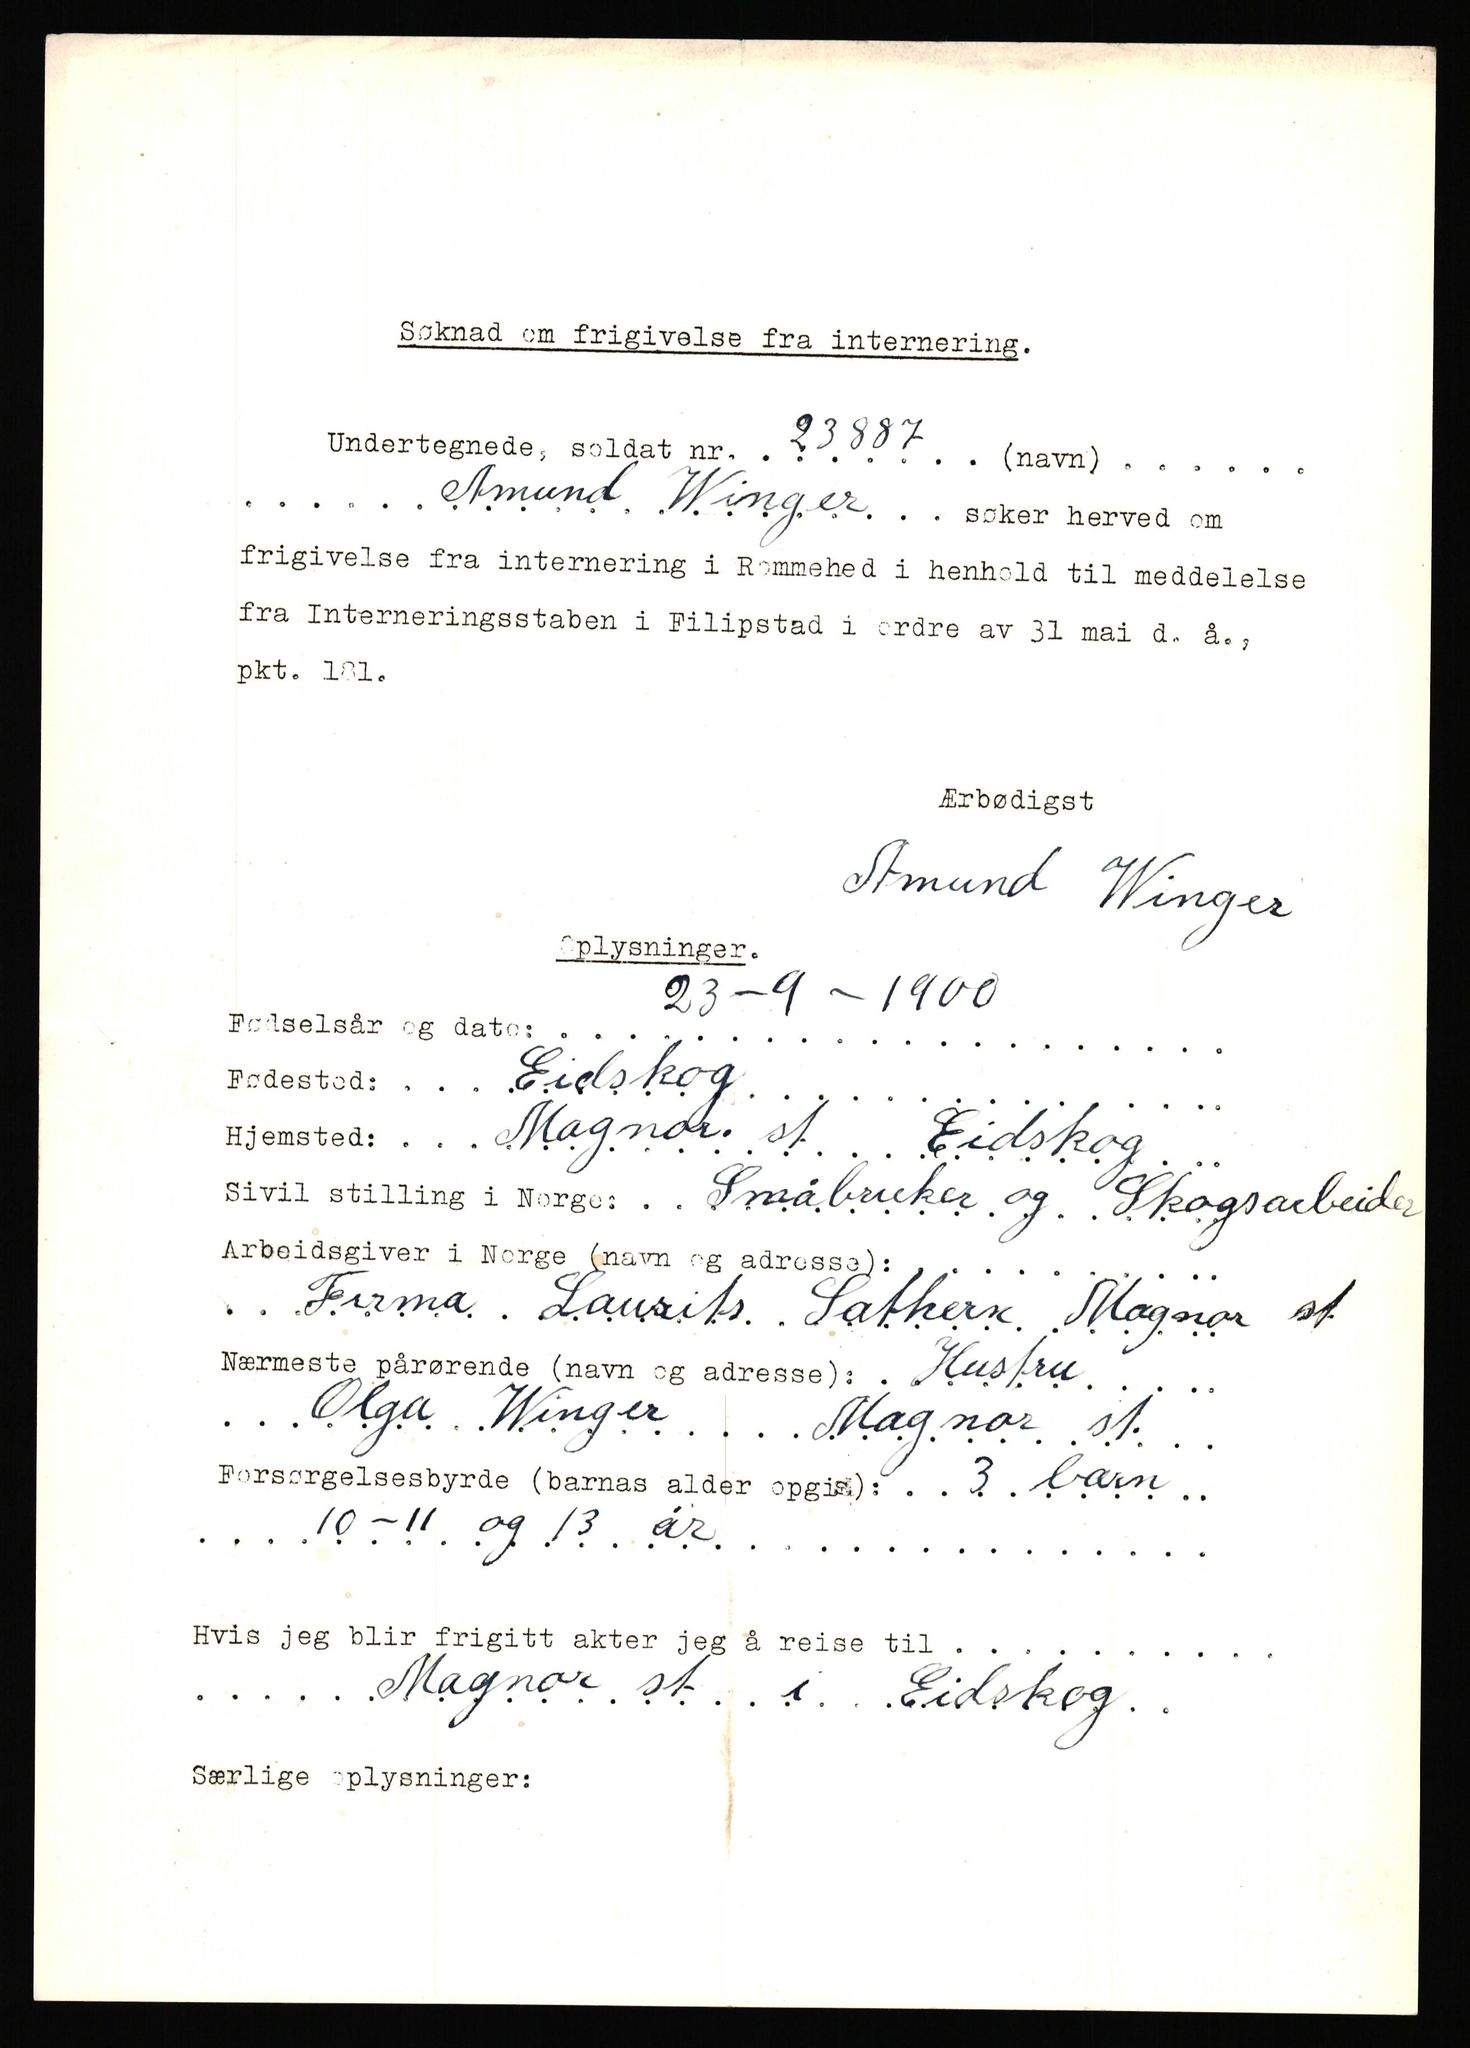 Søknad om frigivelse fra internering.
Undertegnede, soldat nr. . 23887 . . (navn) . . . . . .
. . . . . . Amund Winger . . . søker herved om
frigivelse fra internering i Rommehed i henhold til meddelelse
fra Interneringsstaben i Filipstad i ordre av 31 mai d. å.,
pkt. 181.
Ærbødigst
Amund Winger
Oplysninger.
Fødselsår og dato: 23-9-1900
Fødested: . . . Eidskog
Hjemsted: . . . Magnor. st Eidskog
Sivil stilling i Norge: . . Småbruker og Skogsarbeider
Arbeidsgiver i Norge (navn og adresse): . . . . . . . . . .
. . Firma Laurits Sæthern Magnor st
Nærmeste pårørende (navn og adresse): . Hustru . . . .
. . . Olga Winger . . . . Magnor st. . .
Forsørgelsesbyrde (barnas alder opgis): . . 3 barn . .
. . . . 10-11 og 13 år . . . . . . . . . . . . . . . .
Hvis jeg blir frigitt akter jeg å reise til . . . . . . . . . . .
. . . . . . Magnor st i Eidskog . .
Særlige oplysninger: